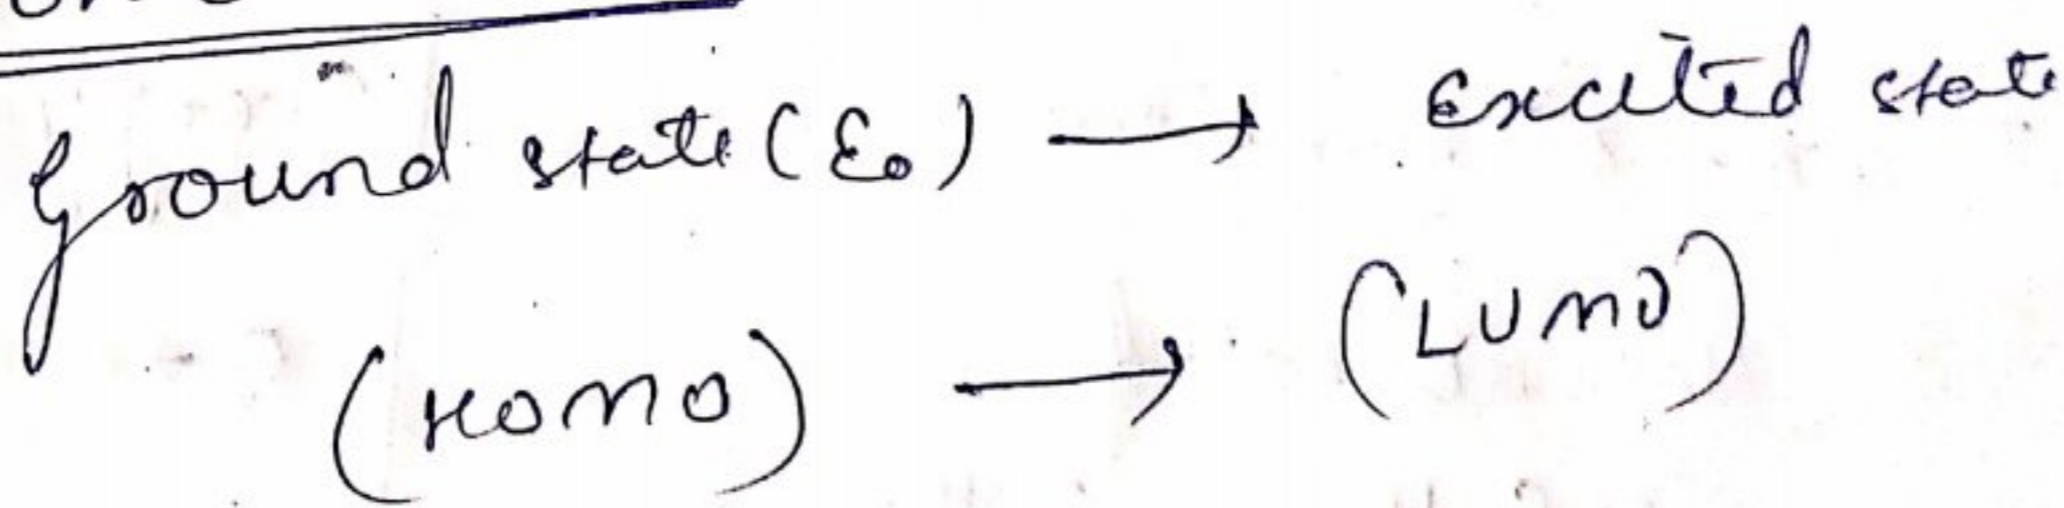 Ground state (E₀) → Excited state
(HOMO) → (LUMO)